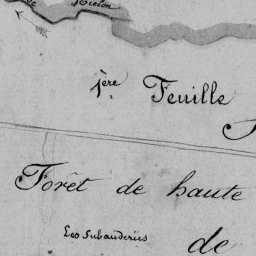 1ère Feuille
Forêt de haute
Les Subanderies
de